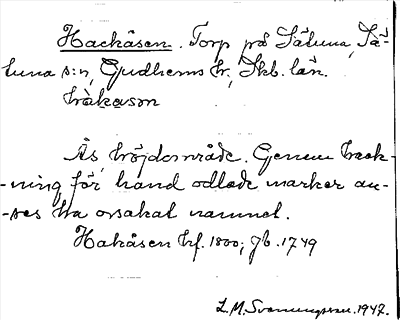 Hackåsen. Torp på Sätuna, Sä-
tuna s:n, Gudhems hr, Skb. län.
hàkasɔn
Ås, höjdområde. Genom hack-
-ning för hand odlade marker an-
-ses ha orsakat namnet.
Hakåsen hf. 1800; jb. 1749
L.M. Svanungsson. 1947.